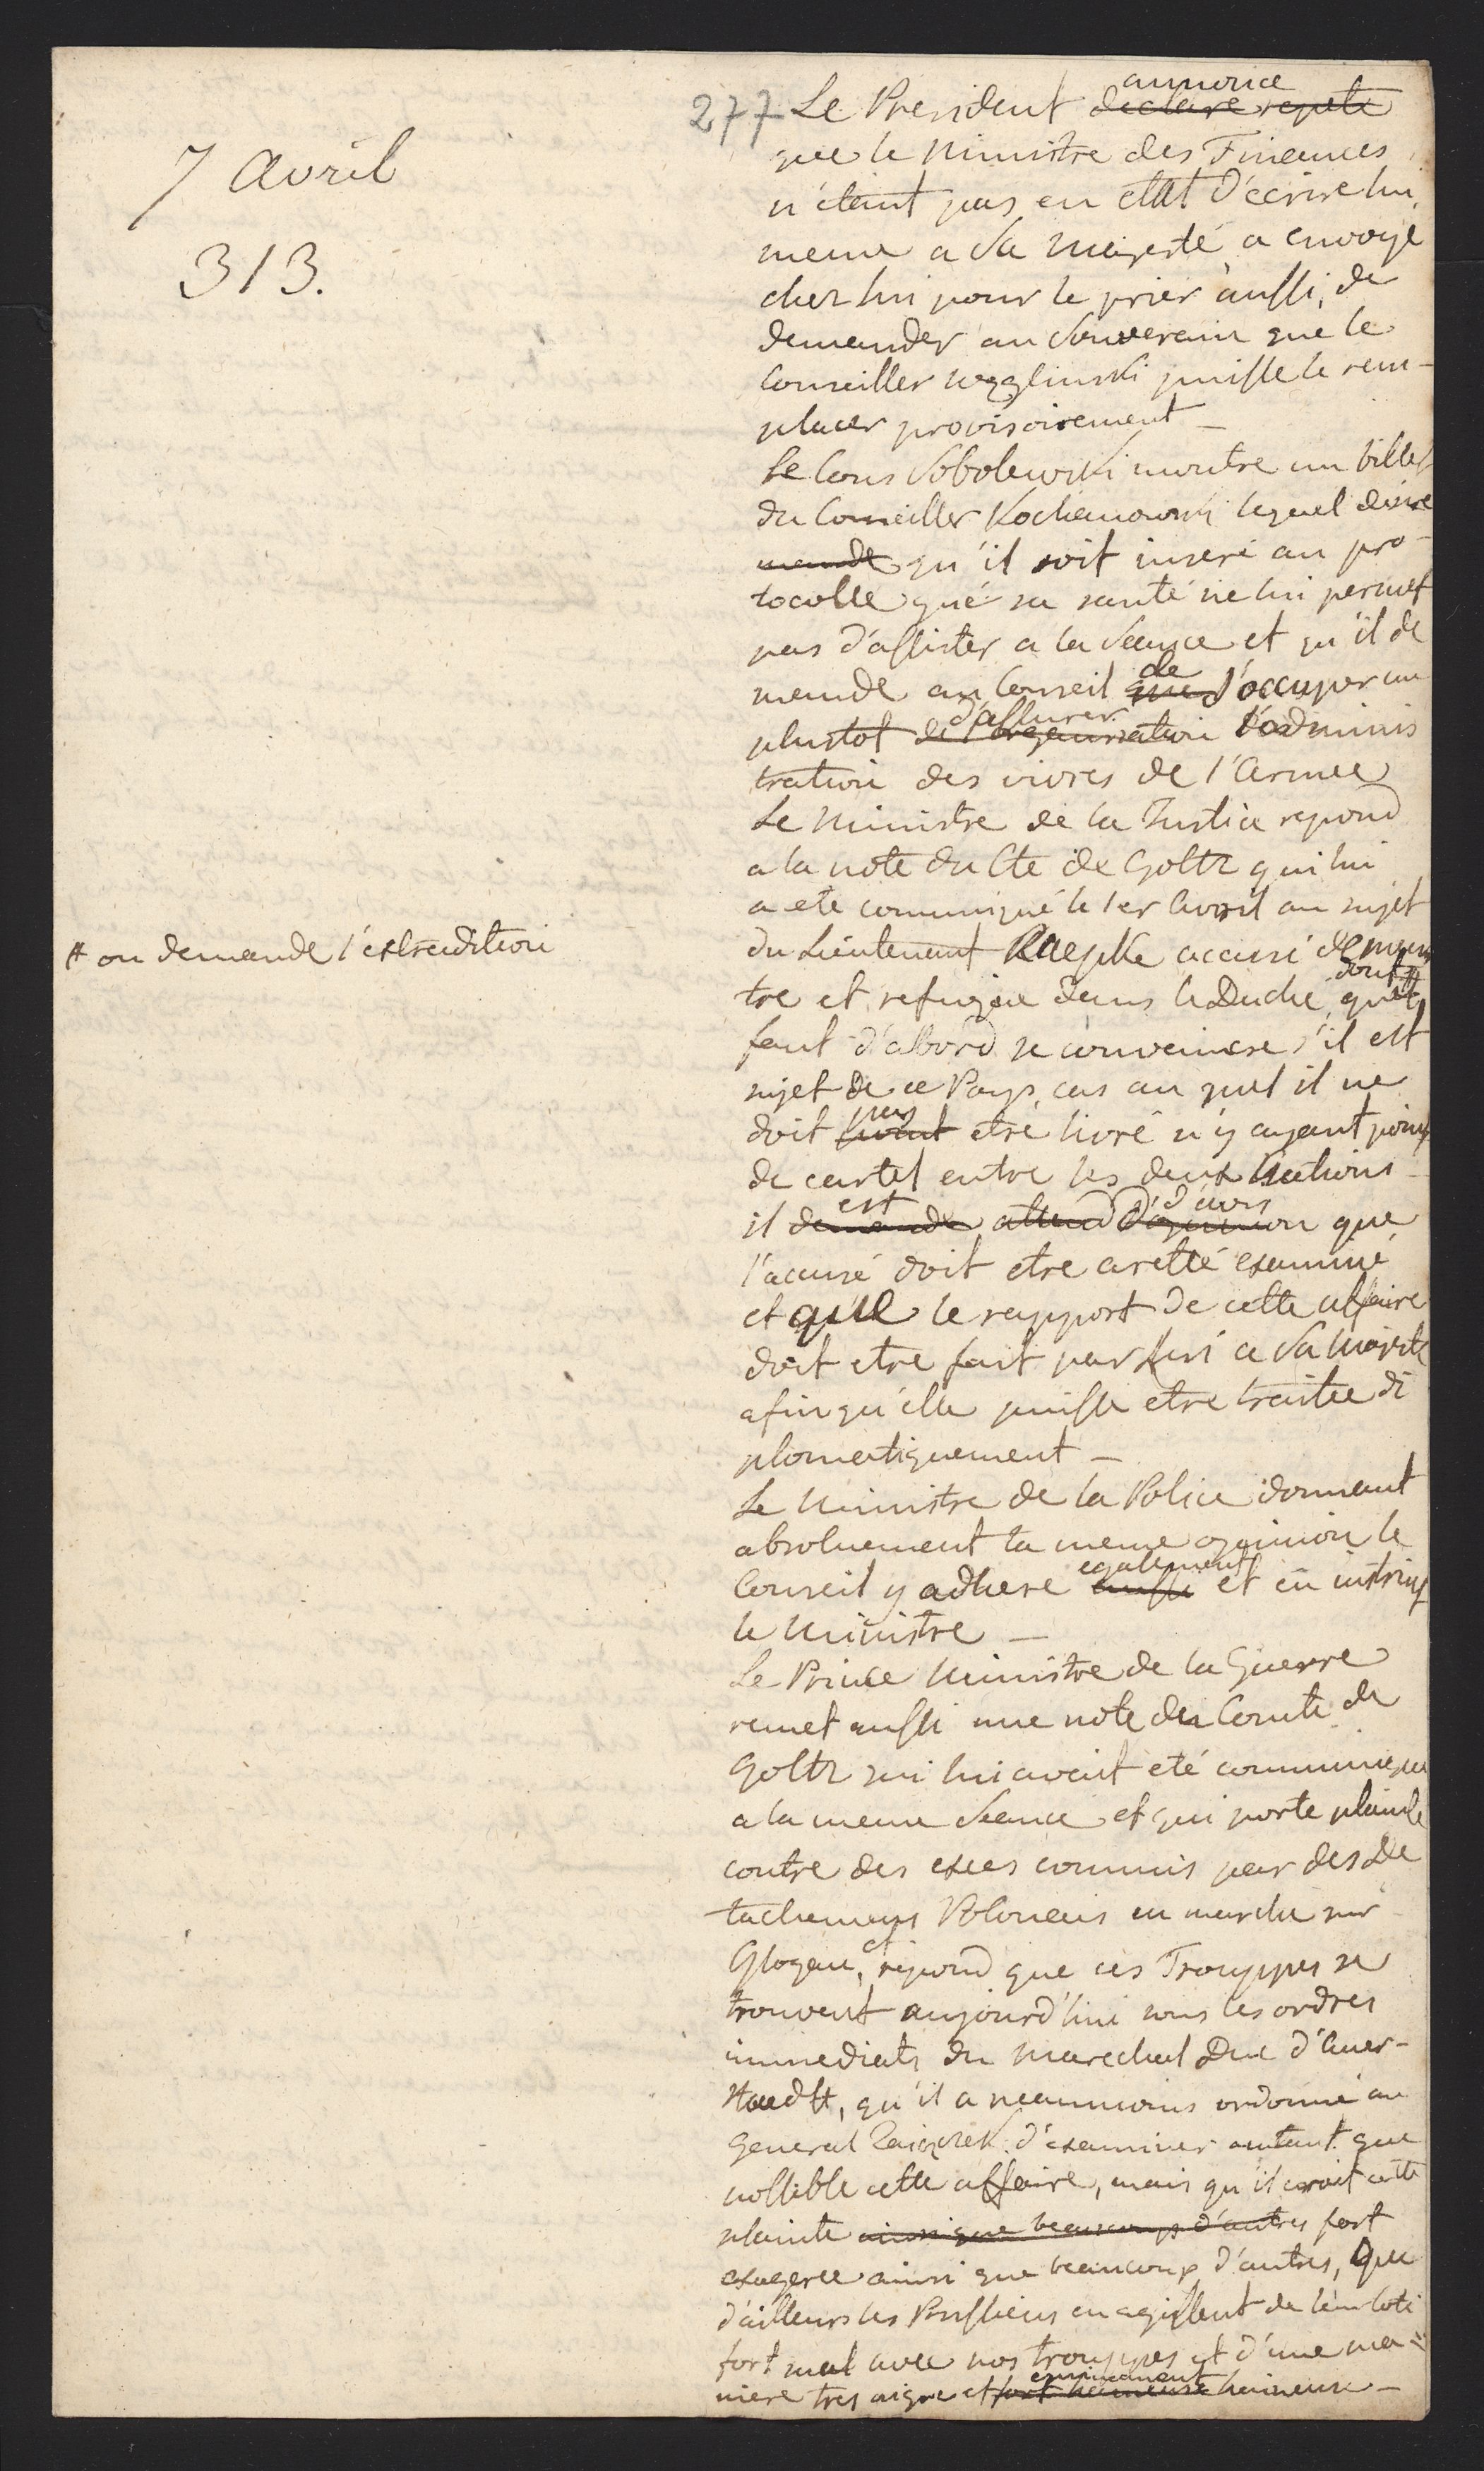 7 Avril
313.
# on demande l'extradition
277 Le President declare repete annonce
que le Ministre des Finances
n'étant pas en etat d'écrire lui
meme a Sa Majesté a envoyé
chez lui pour le prier aussi, de
demander au Souverain que le
Conseiller Węglinski puisse le rem-
placer provisoirement _
Le Cons Sobolewski montre un billet
du Conseiller Kochanowski lequel desire
mande qu'il soit inseré au pro-
tocolle que sa santé ne lui permet
pas d'assister a la Seance et qu'il de
mande au Conseil que de s'occuper au
plustot de l'organisation d'assurer l'adminis
tration des vivres de l'Armee
Le Ministre de la Justice repond
a la note du Cte de Goltz qui lui
a eté communiqué le 1er Avril au sujet
du Lieutenant Raepke accusé de meur
tre et refugié dans le Duché, dont # qu'il
faut d'abord se convaincre s'il est
sujet de ce Pays, cas au quel il ne
doit point pas etre livré n'y ayant point
de cartel entre les deux Nations _
il demande attend d'opinion est d'avis que
l'accusé doit etre aretté examiné
et que le rapport de cette affaire
doit etre fait par lui a Sa Majesté
afin qu'elle puisse etre traitée di
plomatiquement _
Le Ministre de la Police donnant
absoluement la meme opinion le
Conseil y adhere aussi egalement et en instruit
le Ministre _
Le Prince Ministre de la Guerre
remet aussi une note du Comte de
Goltz qui lui avait eté communiquée
a la meme Seance et qui porte plainte
contre des exces commis par des De
tachemens Polonais en marche sur
Glogau, et repond que ces Trouppes se
trouvent aujourd'hui sous les ordres
immediats du Marechal Duc d'Auer-
staedt, qu'il a neanmoins ordonné au
General Zaiączek d'examiner autant que
possible cette affaire, mais qu'il croit cette
plainte ainsi que beaucoup d'autres fort
exageree ainsi que beaucoup d'autres, que
d'ailleurs les Prussiens en agissent de leur coté
fort mal avec nos trouppes et d'une ma=
niere tres aigre et fort haineuse eminemment haineuse _